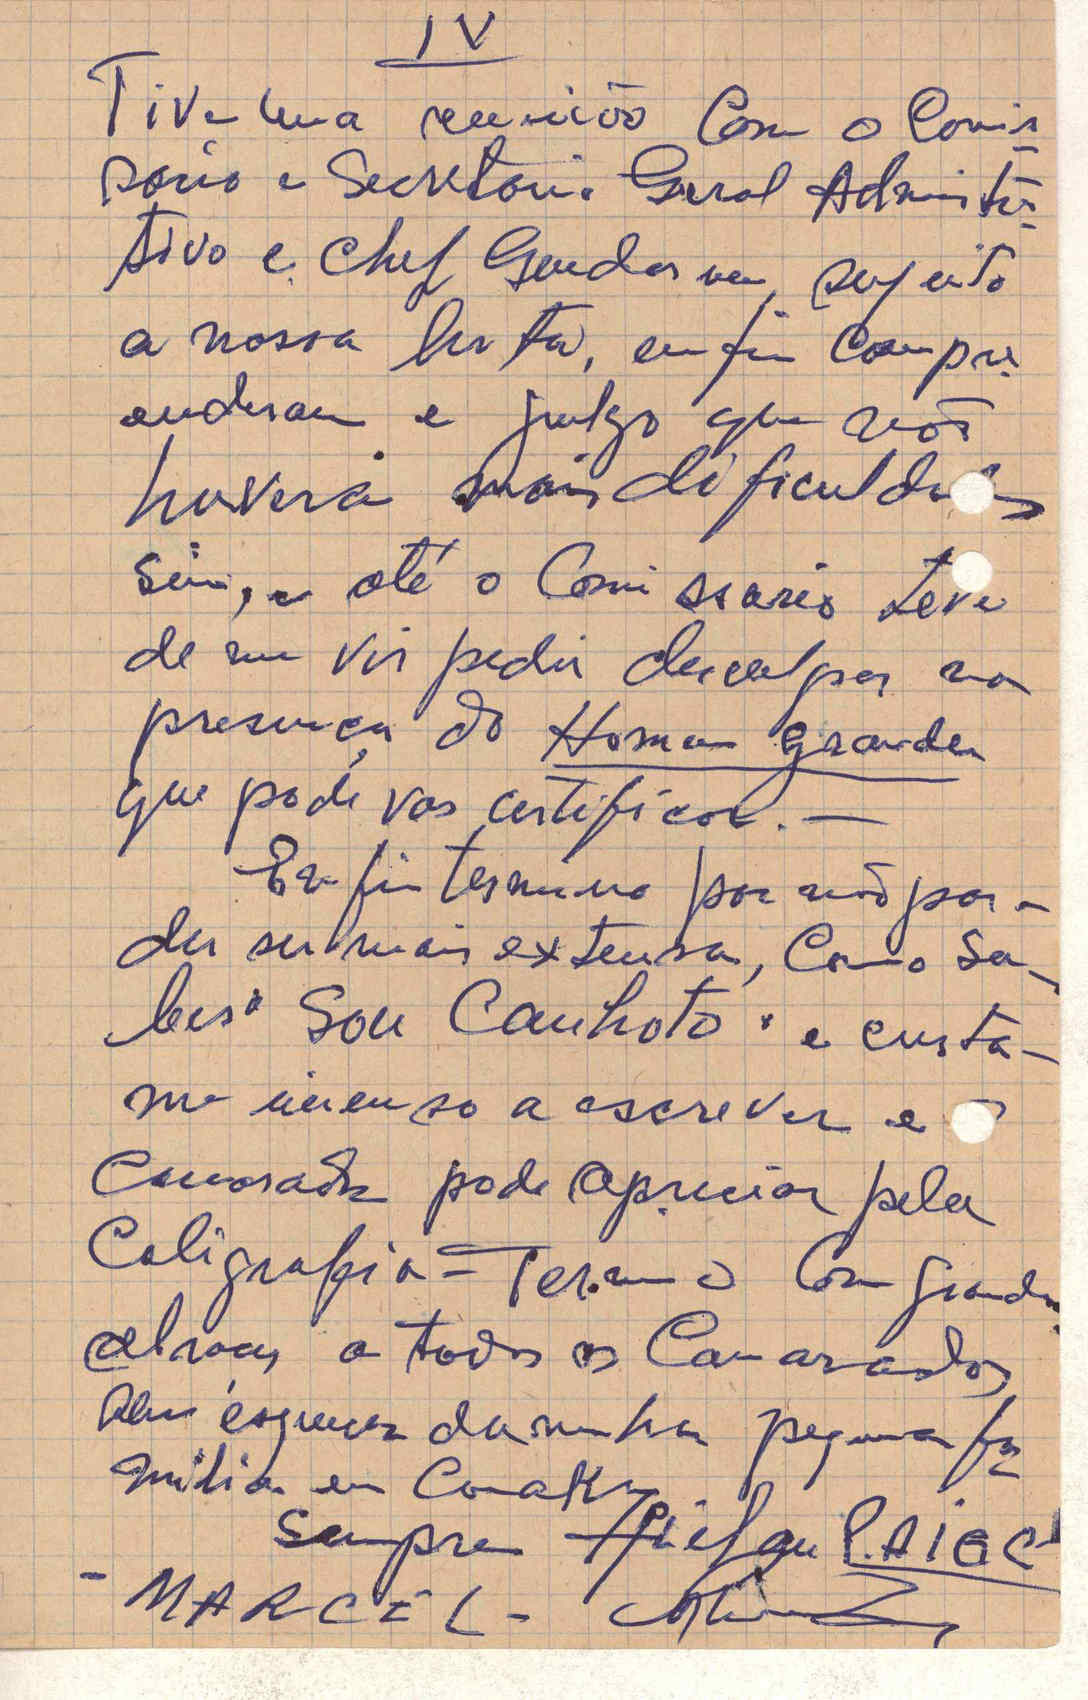 IV
Tive uma reunião com o Comis-
sário e Secretario Geral Adminstra-
tivo e chef Gendarmen, respeito
a nossa luta, enfin compre-
enderam e julgo que não
haverá mais dificuldades
sim, e até o Comissario teve
de me vir pedir desculpas na
presença do Homem grande
que pode vos certificar. —
Enfin termino por não po-
der ser mais extensa, Como sa-
bes "Sou Canhoto" e custa-
me imenso a escrever e o
Camarada pode apreciar pela
Caligrafia = Termino com grande
abraços a todos os Camaradas
sem esquecer da minha pequena fa-
milia em Conakry
Sempre P.AIGC
- MARCEL -